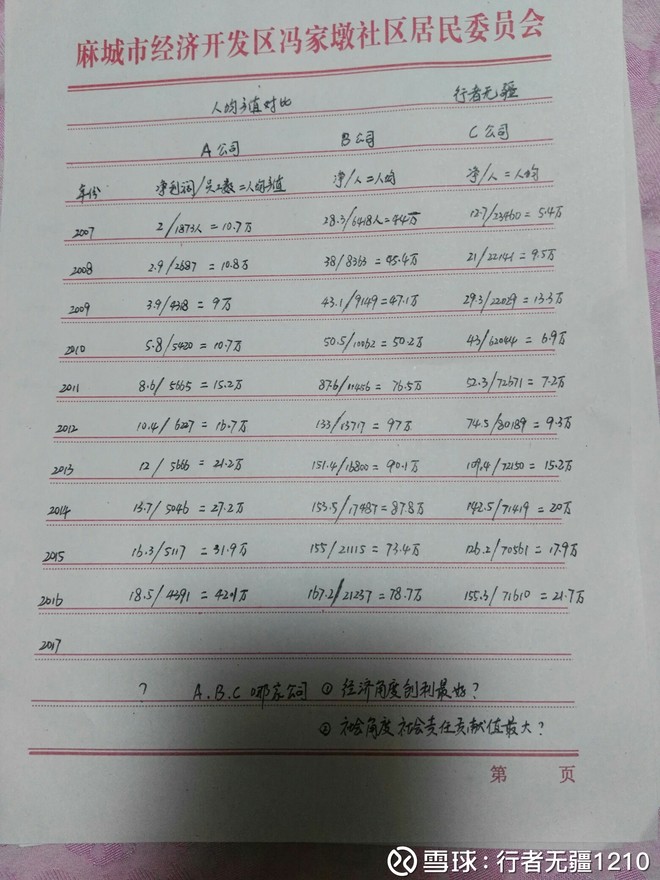 麻城市经济开发区冯家墩社区居民委员会
人均产值对比 行者无疆
A公司 B公司 C公司
年份 净利润/员工数=人均产值 净/人=人均 净/人=人均
2007 2/1873人=10.7万 28.3/6418人=44万 12.7/23460=5.4万
2008 2.9/2687=10.8万 38/8363=45.4万 21/22141=9.5万
2009 3.9/4318=9万 43.1/9149=47.1万 29.3/22029=13.3万
2010 5.8/5420=10.7万 50.5/10062=50.2万 43/62044=6.9万
2011 8.6/5665=15.2万 87.6/11456=76.5万 52.3/72671=7.2万
2012 10.4/6227=16.7万 133/13717=97万 74.5/80189=9.3万
2013 12/5666=21.2万 151.4/16800=90.1万 109.4/72150=15.2万
2014 13.7/5046=27.2万 153.5/17487=87.8万 142.5/71419=20万
2015 16.3/5117=31.9万 155/21115=73.4万 126.2/70561=17.9万
2016 18.5/4391=42.1万 167.2/21237=78.7万 155.3/71610=21.7万
2017
? A.B.C哪家公司 ①经济角度创利最好?
②社会角度社会责任贡献值最大?
第 页
雪球:行者无疆1210